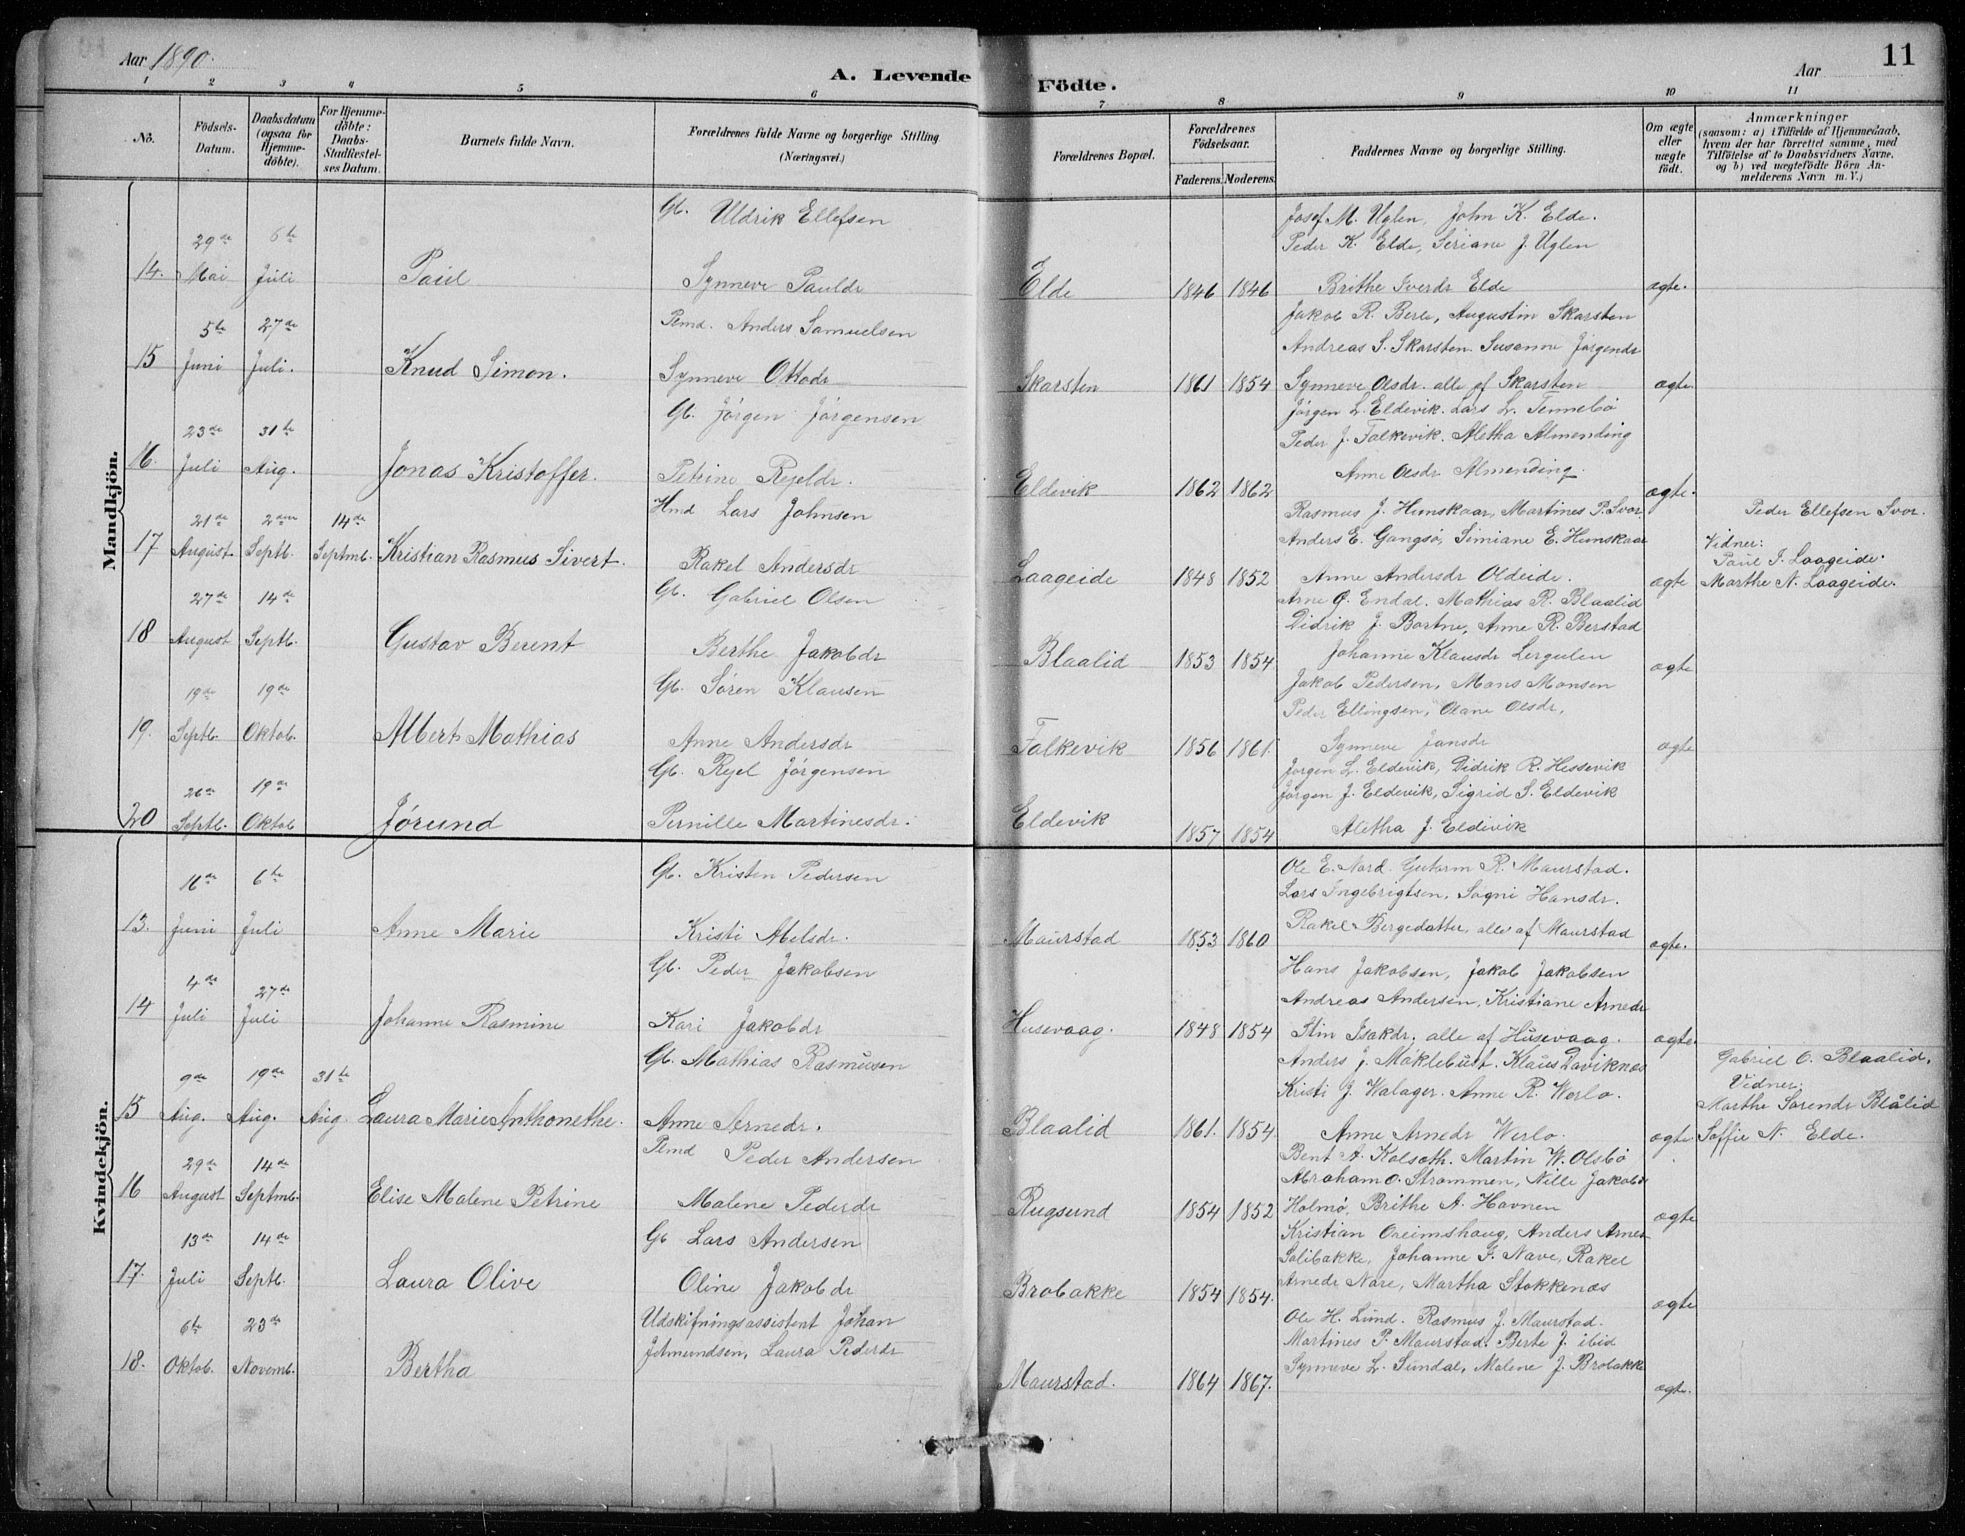 Aar 1890.
A. Levende Födte.
Aar
11
1 2 3 4 5 6 7 8 9 10 11
No.
Födsels-Datum.
Daabsdatum (ogsaa for Hjemme-döbte).
For Hjemme-döbte: Daabs-Stadfæstel-ses Datum.
Barnets fulde Navn.
Forældrenes fulde Navne og borgerlige Stilling. (Næringsvei.)
Forældrenes Bopæl.
Forældrenes Födselsaar.
Faderens. Moderens.
Faddernes Navne og borgerlige Stilling.
Om ægte eller uægte födt.
Anmærkninger
(saasom: a) i Tilfælde af Hjemmedaab, hvem der har forrettet samme, med Tilföielse af to Daabsvidners Navne, og b) ved uægtefödte Börn An-melderens Navn m. V.)
Mandkjön.
14. 29de Mai 6te Juli Paul
Gb. Uldrik Ellefsen
Synneve Pauldr
Elde 1846 1846
Josef M. Uglen, John K. Elde.
Peder K. Elde, Seriane J. Uglen
Brithe Sverdr Elde
ægte.
15 5te Juni 27de Juli. Knud Simon.
Pmd. Anders Samuelsen
Synneve Ottodr
Skarsten 1861 1854
Jakob R. Berle, Augustin Skarsten
Andreas S. Skarsten. Susanne Jörgendr
Synneve Olsdr. alle af Skarsten
ægte
16. 23de Juli 31te Aug. Jonas Kristoffer.
Gb. Jörgen Jörgensen
Petrine Rejeldr.
Eldevik 1862 1862
Jörgen L. Eldevik. Lars L. Tennebö
Peder J. Falkevik. Aletha Almending
Anne Olsdr Almending.
ægte.
17 21de August 2den Septb. 14de Septmb. Kristian Rasmus Sivert.
Hmd Lars Johnsen
Rakel Andersdr
Laageide 1848 1852
Rasmus J. Hunskaar, Martines P. Svor
Anders E. Gangsö, Simiane E. Hunskaar
Anne Andersdr Oldeide.
ægte
Peder Ellefsen Svor.
Vidner:
Paul J. Laageide.
Marthe N. Laageide.
18 27de August 14de Septb. Gustav Berent
Gb. Gabriel Olsen
Berthe Jakobdr
Blaalid 1853 1854
Arne O. Endal. Mathias R. Blaalid
Didrik J. Bortne, Anne R. Berstad
Johanne Klausdr Lergulen
ægte
19. 19de Septb. 19de Oktob. Albert Mathias
Gb. Sören Klausen
Anne Andersdr
Falkevik 1856 1861.
Jakob Pedersen, Mons Monsen
Peder Ellingsen, Olane Olsdr,
Synneve Jansdr
ægte
20 26de Septb. 19de Oktob Jörund
Gb. Rejel Jörgensen
Pernille Martinesdr.
Eldevik 1857 1854
Jorgen L. Eldevik, Didrik R. Hessevik
Jörgen J. Eldevik, Sigrid S. Eldevik
Aletha J. Eldevik
Kvindekjön.
13. 16de Juni 6te Juli Anne Marie
Gb. Kristen Pedersen
Kristi Melsdr.
Maurstad 1853 1860
Ole E. Nord. Gutorm R. Maurstad.
Lars Ingebrigtsen, Sogni Hansdr.
Rakel Bergedatter, alle af Maurstad
ægte.
14 4de Juli 27de Juli Johanne Rasmine
Gb. Peder Jakobsen
Kari Jakobdr
Husevaag. 1848 1854
Hans Jakobsen, Jakob Jakobsen
Andreas Andersen, Kristiane Arnedr
Stin Isakdr. alle af Husevaag.
ægte.
15 9de Aug. 19de Aug. 31te Aug. Laura Marie Anthonethe.
Gb. Mathias Rasmusen
Anne Arnedr.
Blaalid 1861. 1854.
Anders J. Maklebust. Klaus Daviknes
Kristi J. Walager. Anne R. Werlo.
Anne Arnedr Werlo.
ægte
Gabriel O. Blaalid.
Vidner:
Marthe Sorendr Blålid
Soffie N. Elde.
16 29de August 14de Septmb. Elise Malene Petrine
Pmd Peder Andersen
Malene Pederdr
Rugsund 1854 1852
Bent A. Kolseth. Martin W. Olsbö
Abraham O. Strommen, Nille Jakobdr
Holmö, Brithe A. Havnen
ægte
17. 13de Juli 14de Septb. Laura Olive
Gb Lars Andersen
Oline Jakobdr
Brobakke 1854 1854.
Kristian Oreimshaug, Anders Arnes
Solibakke, Johanne J. Nave, Rakel
Arnedr Nore, Martha Stokkenæs
ægte
18. 6te Oktob. 23de Novemb. Bertha
Udskifningsassistent Johan
Jetmundsen, Laura Pederdr
Maurstad. 1864 1867.
Ole H. Lund. Rasmus J. Maurstad.
Martines P. Maurstad. Berte J. ibid
Synneve L. Sundal, Malene J. Brobakke
ægte.